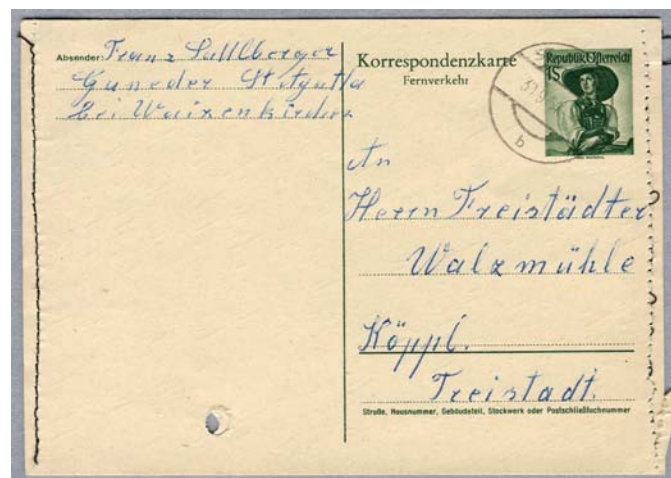 Absender: Franz Sallberger
Guneder St. Agatha
Bei Waizenkirchen
Korrespondenzkarte
Fernverkehr
Republik Österreich
1S
b
An
Herrn Freistädter
Walzmühle
Köppl.
Freistadt.
Straße, Hausnummer, Gebäudeteil, Stockwerk oder Postschließfachnummer